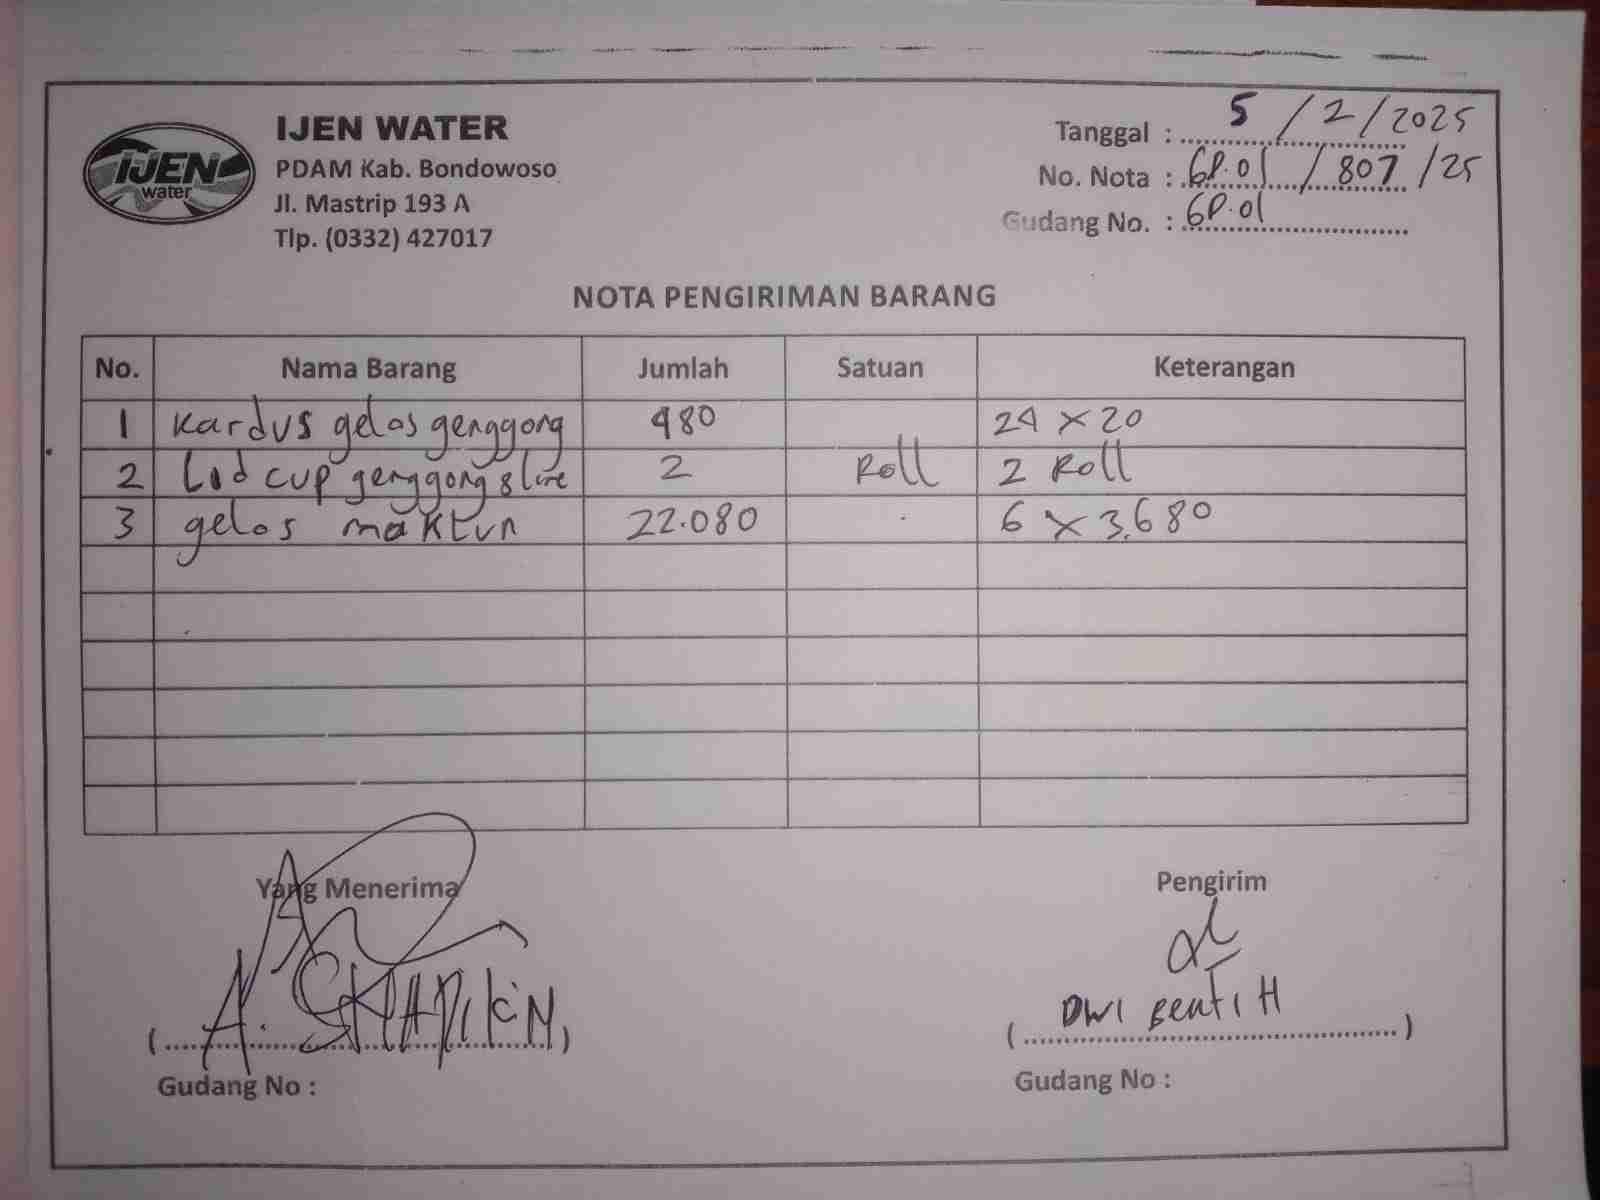 IJEN WATER
IJEN
water
PDAM Kab. Bondowoso
Jl. Mastrip 193 A
Tlp. (0332) 427017
Tanggal : 5 / 2 / 2025
No. Nota : GP.01 / 807 / 25
Gudang No. : GP.01
NOTA PENGIRIMAN BARANG
No. Nama Barang Jumlah Satuan Keterangan
1 Kardus gelas genggong 480 24 x 20
2 Lid cup genggong 8 line 2 Roll 2 Roll
3 gelas maktun 22.080 6 x 3.680
Yang Menerima Pengirim
( A. ) ( DWI H )
Gudang No : Gudang No :